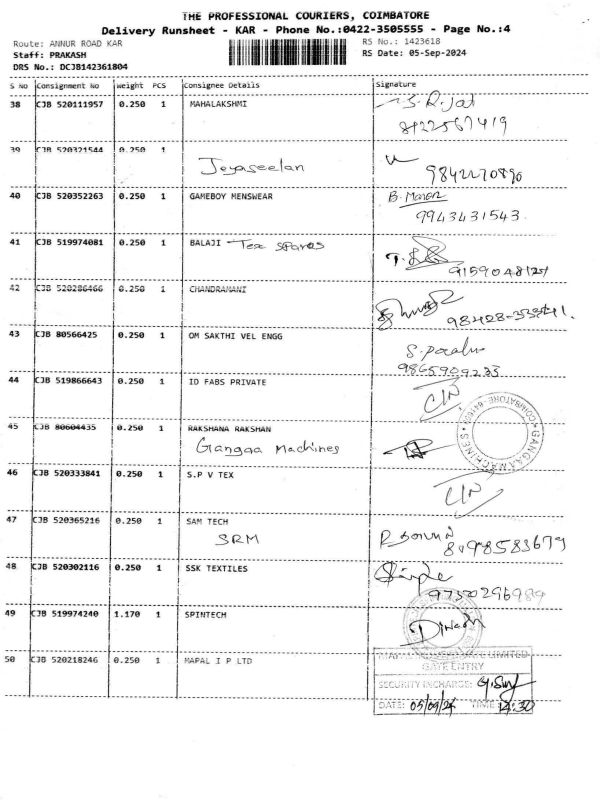 THE PROFESSIONAL COURIERS, COIMBATORE
Delivery Runsheet - KAR - Phone No.:0422-3505555 - Page No.:4
Route: ANNUR ROAD KAR RS No.: 1423618
Staff: PRAKASH RS Date: 05-Sep-2024
DRS No.: DCJB142361804
S No Consignment No Weight PCS Consignee Details Signature
38 CJB 520111957 0.250 1 MAHALAKSHMI
8122567419
39 CJB 520321544 0.250 1
Jeyaseelan
9842270896
40 CJB 520352263 0.250 1 GAMEBOY MENSWEAR
9943431543
41 CJB 519974081 0.250 1 BALAJI Tex spares
42 CJB 520286466 0.250 1 CHANDRAMANI
43 CJB 80566425 0.250 1 OM SAKTHI VEL ENGG
9865909233
44 CJB 519866643 0.250 1 ID FABS PRIVATE
45 CJB 80604435 0.250 1 RAKSHANA RAKSHAN
Gangaa Machines
GANGAA MACHINES COIMBATORE
46 CJB 520333841 0.250 1 S.P V TEX
47 CJB 520365216 0.250 1 SAM TECH
SRM
8098583679
48 CJB 520302116 0.250 1 SSK TEXTILES
9750296989
49 CJB 519974240 1.170 1 SPINTECH
Dinesh
50 CJB 520218246 0.250 1 MAPAL I P LTD
GATE ENTRY
SECURITY INCHARGE:
DATE: 05/09/24 TIME 14:30